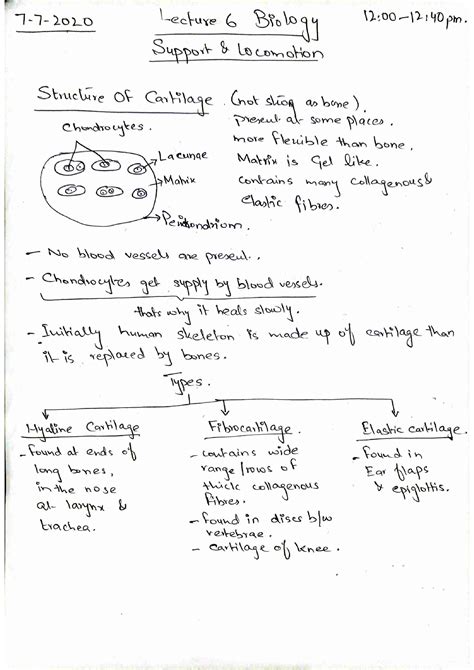 7-7-2020
Lecture 6 Biology
12:00-12:40pm.
Support & Locomotion
Structure Of Cartilage
(not strong as bone).
present at some places.
more flexible than bone.
Matrix is Gel like.
contains many collagenous &
Elastic fibres.
Chondrocytes.
Lacunae
Matrix
Perichondrium.
- No blood vessels are present..
- Chondrocytes get supply by blood vessels.
thats why it heals slowly.
- Initially human skeleton is made up of cartilage than
it is replaced by bones.
Types.
Hyaline Cartilage
- found at ends of
long bones,
in the nose
at larynx &
trachea.
Fibrocartilage.
- contains wide
range/rows of
thick collagenous
fibres.
- found in discs b/w
vertebrae.
- cartilage of knee.
Elastic cartilage.
- found in
Ear flaps
& epiglottis.